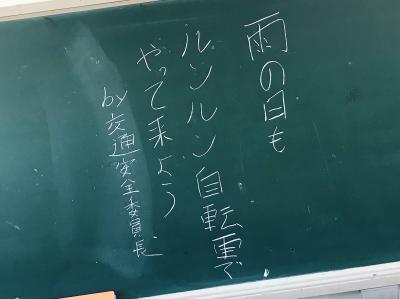 雨の日も
ルンルン自転車で
やって来よう
by交通安全委員長